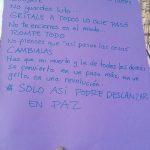 No guardes luto...
GRÍTALE A TODOS LO QUE PASÓ
No te encierres en el miedo.
ROMPE TODO
No pienses que "así pasan las cosas"
CAMBIALAS
Haz que mi muerte y la de todas las demás
se convierta en un paso más, en un
grito, en una revolución.
* SOLO ASÍ PODRÉ DESCANSAR
EN PAZ